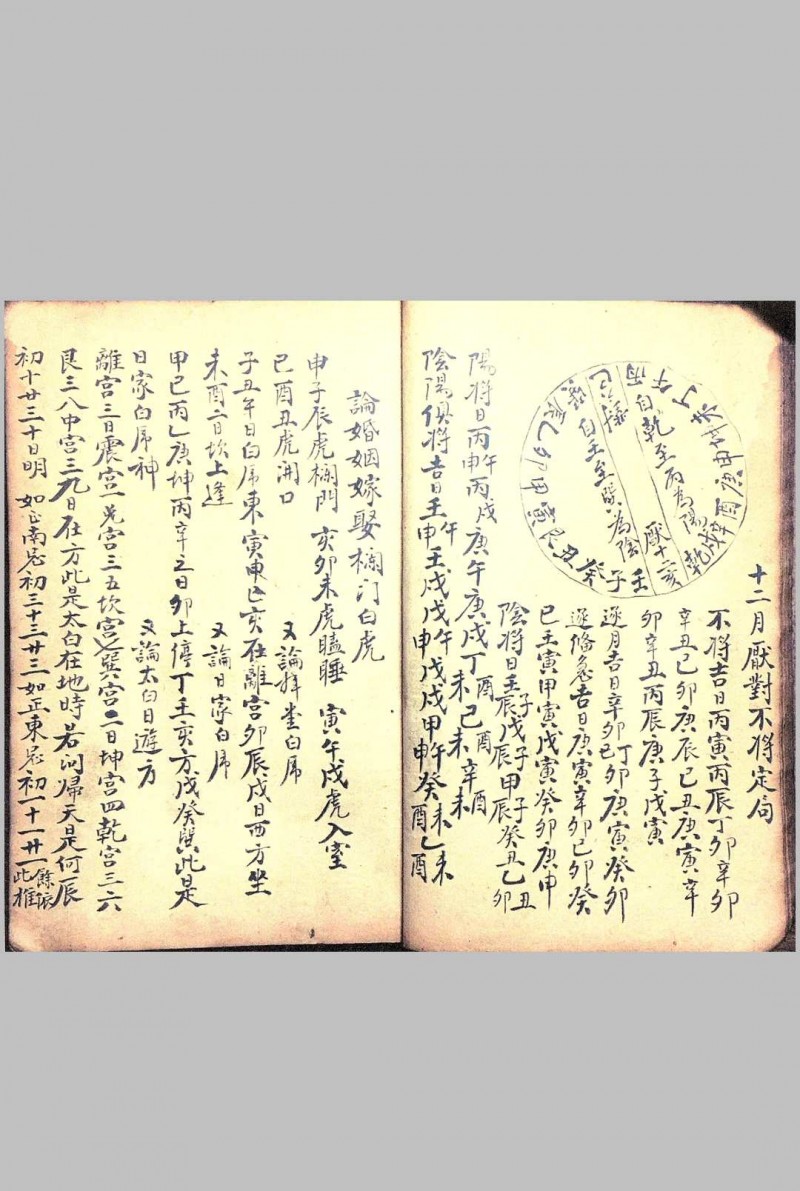 十二月厭對不將定局
不將吉日丙寅丙辰丁卯辛卯
辛丑己卯庚辰己丑庚寅辛
卯辛丑丙辰庚子戊寅
逐月吉日辛卯丁卯庚寅癸卯
己
逐條急吉日庚寅辛卯己卯癸
巳壬寅甲寅戊寅癸卯庚申
陰將日壬子戊子甲子癸丑乙丑
辰 辰 辰 卯
陽將日丙午丙戌庚午庚戌丁未己未辛未
申 酉 酉 酉
陰陽俱將吉日壬午壬戌戊午戊戌甲午癸未乙未
申 申 申 酉 酉
自乾至丙為陽
自壬至巽為陰
厭十二亥
壬子癸丑艮寅甲卯乙辰
巽巳丙午丁未坤申庚酉辛戌乾
論婚姻嫁娶欄门白虎
申子辰虎欄門 亥卯未虎瞌睡 寅午戌虎入室
巳酉丑虎開口 又論拜堂白虎
子丑午日白虎東寅申巳亥在離宮卯辰戌日西方坐
未酉二日坎上逢 又論日家白虎
甲己丙乙庚坤丙辛之日卯上停丁壬亥方戊癸巽此是
日家白虎神 又論太白日遊方
離宮三日震宮一兌宮三五坎宮七巽宮二日坤宮四乾宮三六
艮三八中宮三九日在方此是太白在地時若问歸天是何辰
初十廿三十日明 如正南忌初三十三廿三如正東忌初一十一廿一餘依此推